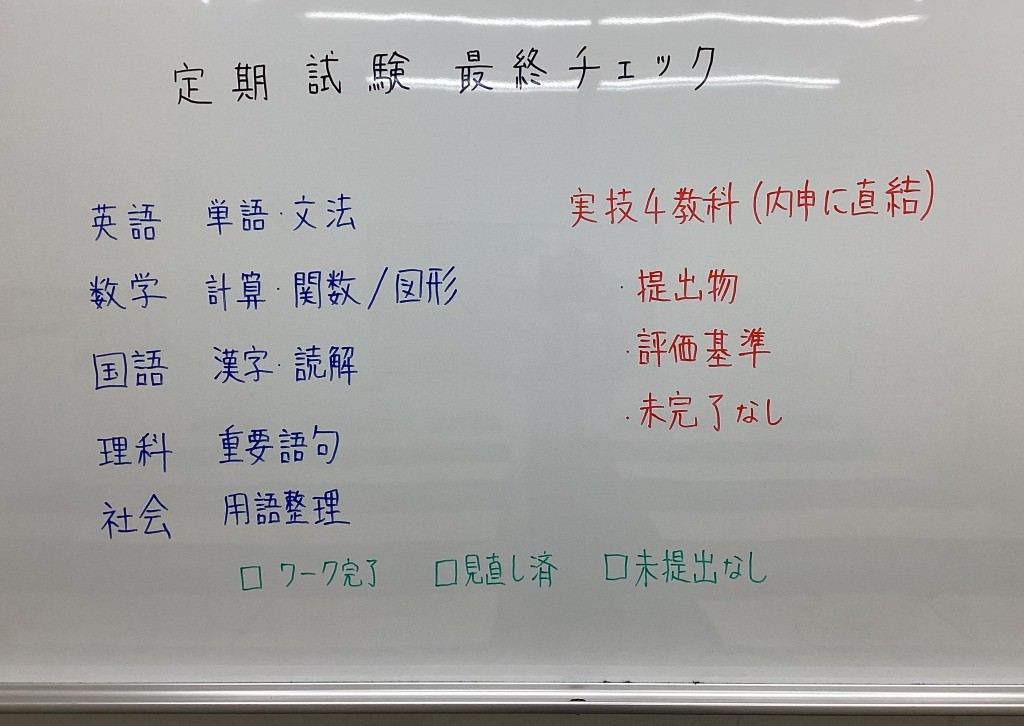 定期試験 最終チェック
英語 単語・文法
数学 計算・関数/図形
国語 漢字・読解
理科 重要語句
社会 用語整理
実技4教科(内申に直結)
・提出物
・評価基準
・未完了なし
□ワーク完了 □見直し済 □未提出なし